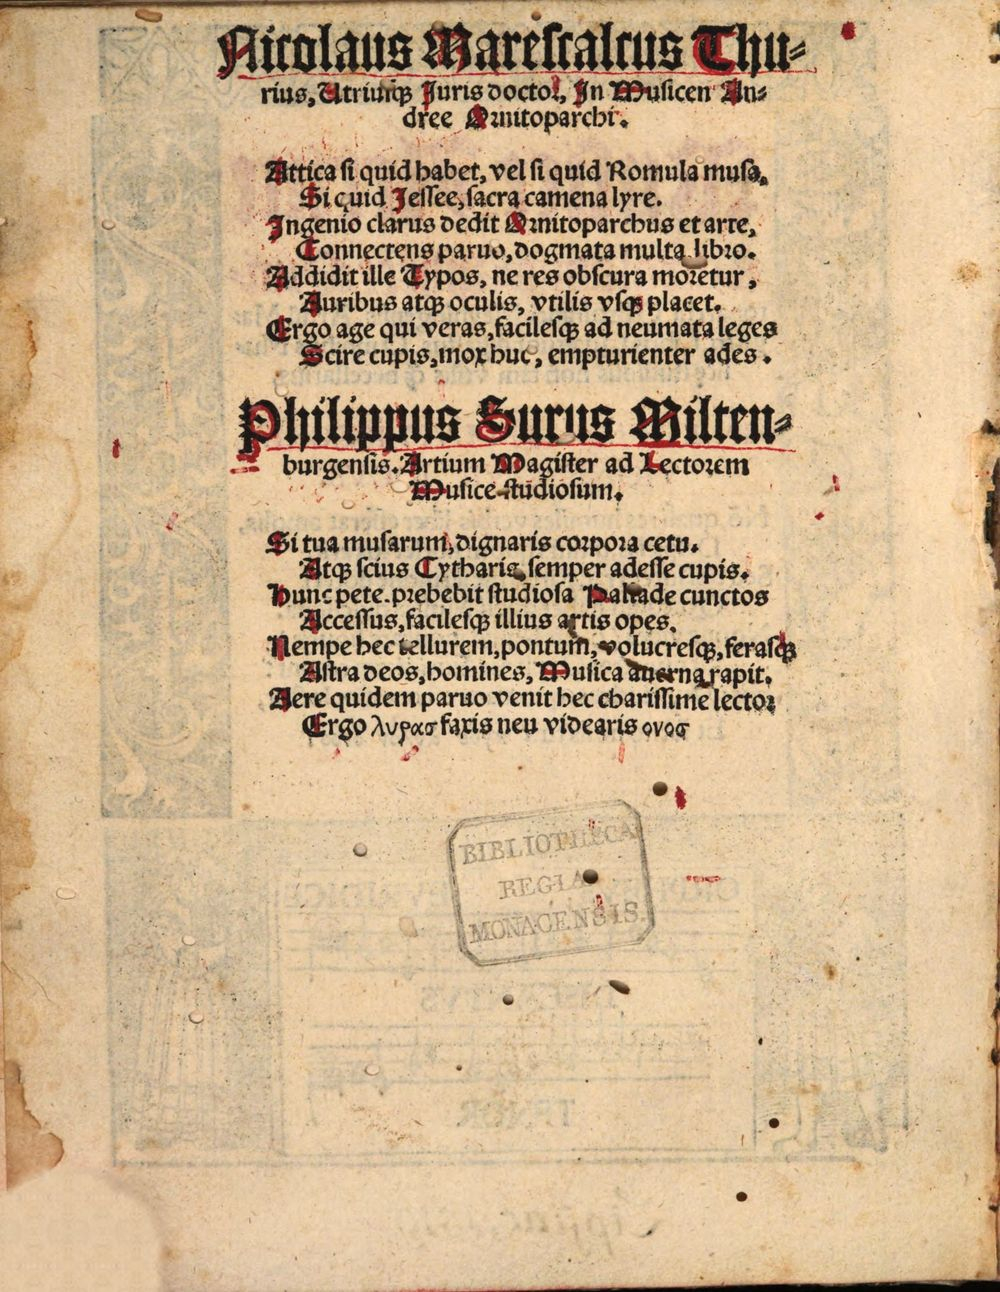 Nicolaus Marescalcus Thu-
rius, Utriusqꝫ Juris doctor, In Musicen An-
dree Ornitoparchi.
Attica si quid habet, vel si quid Romula musa,
Si quid Jessee, sacra camena lyre.
Ingenio clarus dedit Ornitoparchus et arte,
Connectens paruo, dogmata multa libro.
Addidit ille Typos, ne res obscura moretur,
Auribus atqꝫ oculis, vtilis vsqꝫ placet.
Ergo age qui veras, facilesqꝫ ad neumata leges
Scire cupis, mox huc, empturienter ades.
Philippus Surus Milten-
burgensis. Artium Magister ad Lectorem
Musice studiosum.
Si tua musarum, dignaris corpora cetu.
Atqꝫ scius Cytharis, semper adesse cupis.
Hunc pete. prebebit studiosa Pallade cunctos
Accessus, facilesqꝫ illius artis opes.
Nempe hec tellurem, pontum, volucresqꝫ, ferasqꝫ
Astra deos, homines, Musica auerna rapit.
Aere quidem paruo venit hec charissime lector
Ergo λυρας faxis neu videaris ονος
BIBLIOTHECA
REGIA
MONACENSIS.